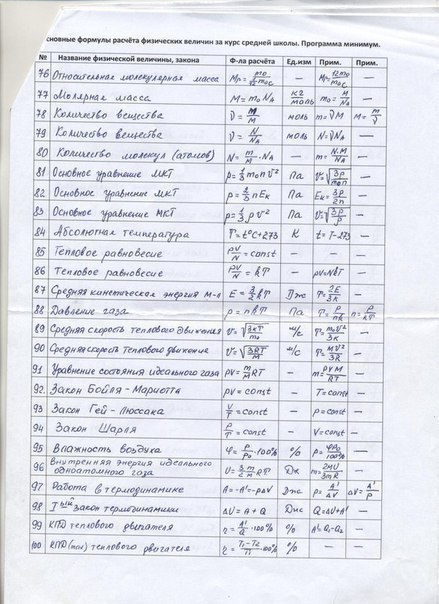 основные формулы расчёта физических величин за курс средней школы. Программа минимум.
№ Название физической величины, закона Ф-ла расчёта Ед.изм Прим. Прим.
76 Относительная молекулярная масса Mr = m₀ / 1/12 m₀c — Mr = 12m₀/m₀c —
77 Молярная масса M = m₀ NA кг/моль m₀ = M/NA —
78 Количество вещества ν = m/M моль m = νM M = m/ν
79 Количество вещества ν = N/NA моль N = νNA —
80 Количество молекул (атомов) N = m/M · NA — —
81 Основное уравнение МКТ p = 1/3 m₀ n v² Па v = √3p/m₀n —
82 Основное уравнение МКТ p = 2/3 n Eк Па Eк = 3p/2n —
83 Основное уравнение МКТ p = 1/3 ρ v² Па v = √3p/ρ —
84 Абсолютная температура T = t°C + 273 К t = T - 273 —
85 Тепловое равновесие pV/N = const — — —
86 Тепловое равновесие pV/N = kT — pV = NkT —
87 Средняя кинетическая энергия М-л E = 3/2 kT Дж T = 2E/3k —
88 Давление газа p = nkT Па T = p/nk n = p/kT
89 Средняя скорость теплового движения v = √3kT/m₀ м/с T = m₀v²/3k —
90 Средняя скорость теплового движения v = √3RT/M м/с T = Mv²/3R —
91 Уравнение состояния идеального газа pV = m/M RT — m = pVM/RT —
92. Закон Бойля - Мариотта pV = const — T = const —
93 Закон Гей - Люссака V/T = const — p = const —
94 Закон Шарля p/T = const — V = const —
95 Влажность воздуха φ = p/p₀ · 100% % —
96 Внутренняя энергия идеального одноатомного газа U = 3/2 m/M RT Дж —
97 Работа в термодинамике Дж p = A'/ΔV
98 Iый закон термодинамики ΔU = A + Q Дж Q = ΔU + A' —
99 КПД теплового двигателя η = A'/Q · 100% % A' = Q₁ - Q₂ —
100 КПД (max) теплового двигателя η = T₁ - T₂/T₁ · 100% % — —